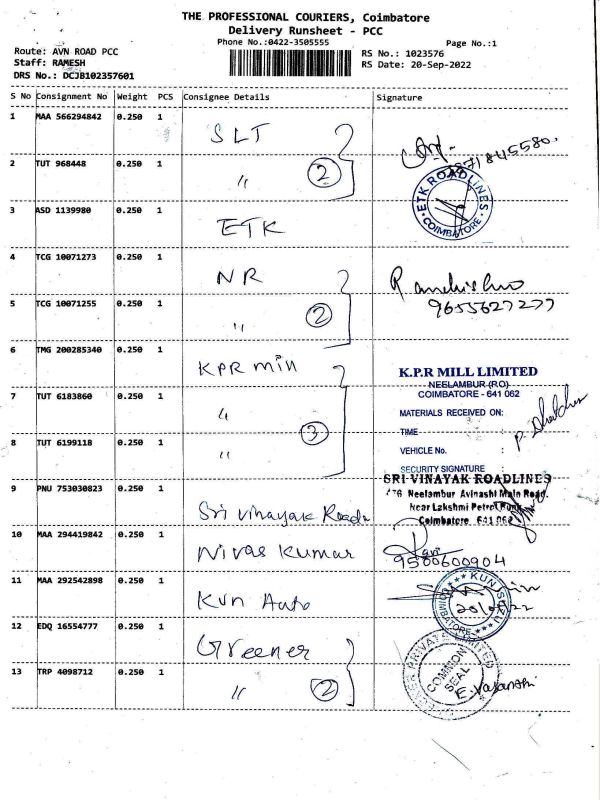 THE PROFESSIONAL COURIERS, Coimbatore
Delivery Runsheet - PCC
Phone No.:0422-3505555
Page No.:1
Route: AVN ROAD PCC
Staff: RAMESH
DRS No.: DCJB102357601
RS No.: 1023576
RS Date: 20-Sep-2022
S No Consignment No Weight PCS Consignee Details Signature
1 MAA 566294842 0.250 1 SLT
2 TUT 968448 0.250 1 〃 2
ETK ROADLINES
COIMBATORE
3 ASD 1139980 0.250 1 ETK
4 TCG 10071273 0.250 1 NR
9655627277
5 TCG 10071255 0.250 1 〃 2
6 TMG 200285340 0.250 1 KPR min
K.P.R MILL LIMITED
NEELAMBUR (RO)
COIMBATORE - 641 062
7 TUT 6183860 0.250 1 〃
MATERIALS RECEIVED ON:
TIME :
8 TUT 6199118 0.250 1 〃 3
VEHICLE No. :
SECURITY SIGNATURE
9 PNU 753030823 0.250 1 Sri Vinayak Roads
SRI VINAYAK ROADLINES
Neelambur Avinashi Main Road,
Near Lakshmi Petrol Bunk,
Coimbatore
10 MAA 294419842 0.250 1 Nivas Kumar
9500600904
11 MAA 292542898 0.250 1 Kun Auto
12 EDQ 16554777 0.250 1 Greener
PRIVATE LIMITED
COMMON
SEAL
13 TRP 4098712 0.250 1 〃 2
E. Vasanthi